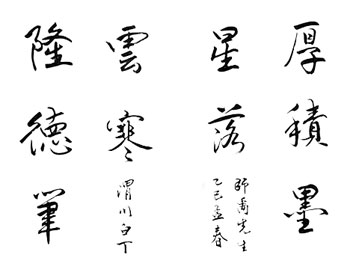 厚積墨
星落
師喬先生
乙巳孟春
隆德筆
雲寒
渭川白丁